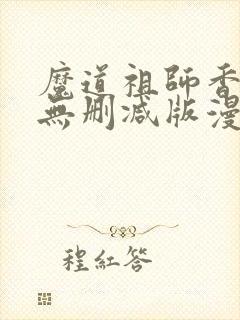 魔道祖師香
無删减版漫
程紅答